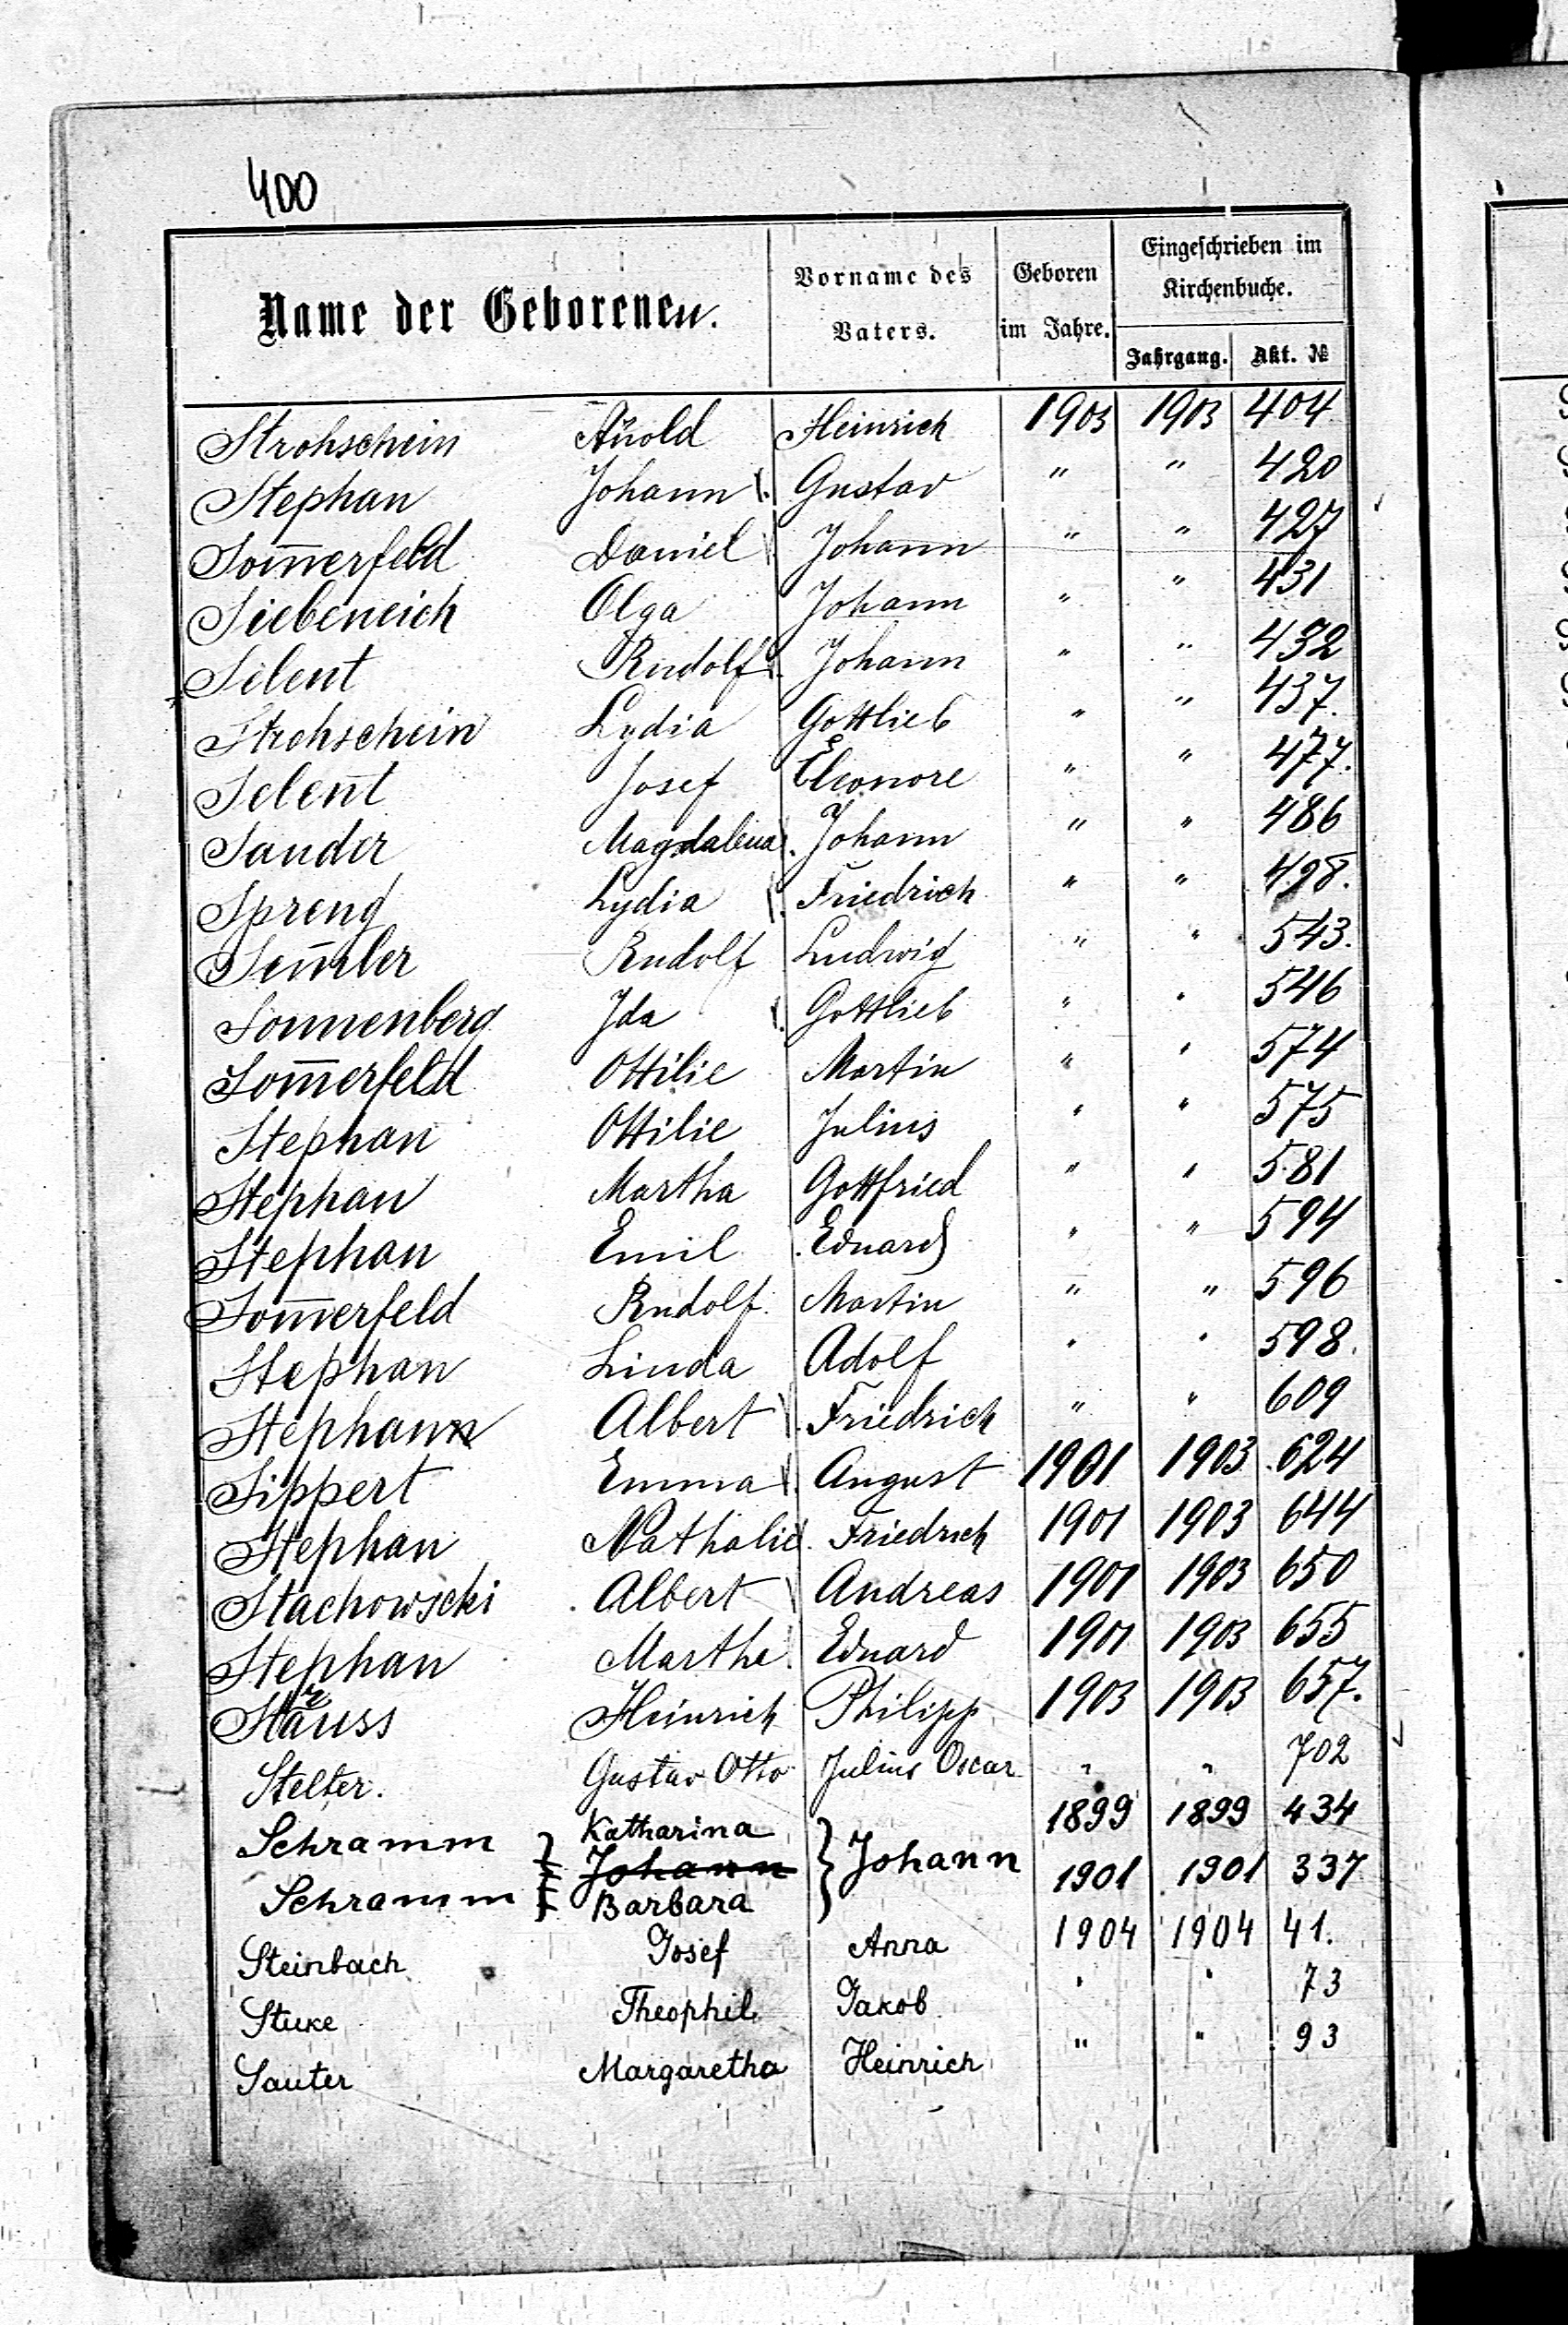 400
Name der Geborenen.
Vorname des Vaters.
Geboren im Jahre.
Eingeschrieben im Kirchenbuche.
Jahrgang. Akt. №
Strohschein Arnold Heinrich 1903 1903 404
Stephan Johann Gustav " " 420
Som̅erfeld Daniel Johann " " 427
Siebeneich Olga Johann " " 431
Selent Rudolf Johann " " 432
Strohschein Lydia Gottlieb " " 437.
Selent Josef Eleonore " " 477.
Sander Magdalena Johann " " 486
Spreng Lydia Friedrich " " 498.
Rudolf Ludwig " " 543.
Sonnenberg Ida Gottlieb " " 546
Som̅erfeld Ottilie Martin " " 574
Stephan Ottilie Julius " " 575
Stephan Martha Gottfried " " 581
Stephan Emil Eduard " " 594
Som̅erfeld Rudolf Martin " " 596
Stephan Linda Adolf " " 598.
Stephan Albert Friedrich " " 609
Sippert Emma August 1901 1903 624
Stephan Nathalie Friedrich 1901 1903 644
Stachowscki Albert Andreas 1901 1903 650
Stephan Marthe Eduard 1901 1903 655
Strauss Heinrich Philipp 1903 1903 657.
Stelter. Gustav Otto Julius Oscar " " 702
Schramm Katharina Johann 1899 1899 434
Johann
Schramm Barbara 1901 1901 337
Steinbach Josef Anna 1904 1904 41.
Stuke Theophil Jakob " " 73
Sauter Margaretha Heinrich " " 93